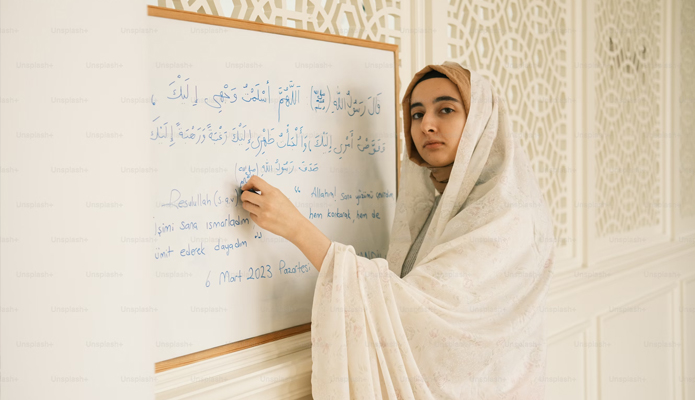 قَالَ رَسُولُ اللّٰهِ (ﷺ) اَللّٰهُمَّ أَسْلَمْتُ وَجْهِي إِلَيْكَ ،
وَفَوَّضْتُ أَمْرِي إِلَيْكَ ، وَأَلْجَأْتُ ظَهْرِي إِلَيْكَ رَغْبَةً وَرَهْبَةً إِلَيْكَ
صَدَقَ رَسُولُ اللّٰهِ (ﷺ)
Resulullah (s.a.v) “ Allahım! sana yüzümü çevirdim
İşimi sana ısmarladım hem korkarak, hem de
ümit ederek dayadım ”
6 Mart 2023 Pazartesi